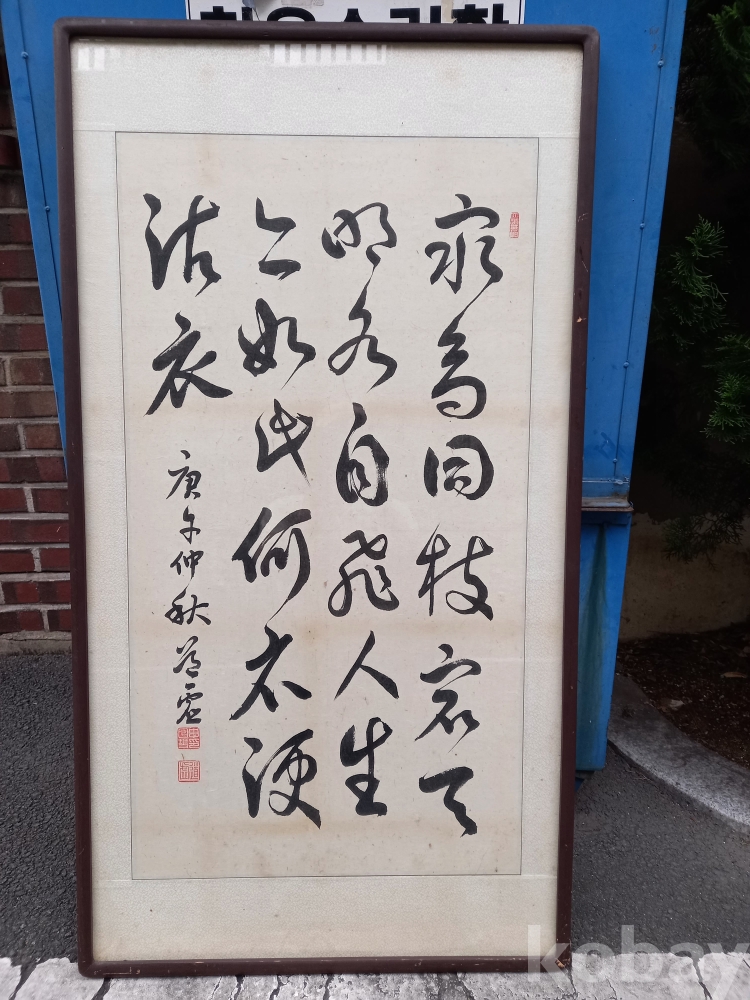 衆鳥同枝宿天
明各自飛人生
亦如此何必淚
沾衣
庚午仲秋
kobay